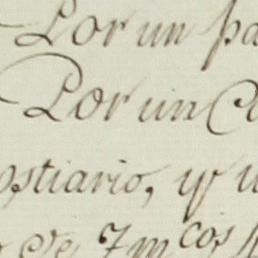 Por un pa
Por un C
ostiario, y u
de 7 mcos